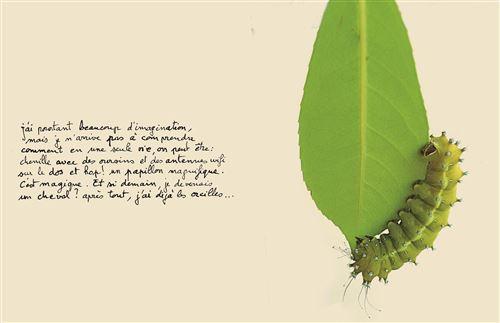 j'ai pourtant beaucoup d'imagination,
mais je n'arrive pas à comprendre
comment en une seule vie, on peut être:
chenille avec des oursins et des antennes wifi
sur le dos et hop! un papillon magnifique.
C'est magique. Et si demain, je devenais
un cheval? après tout, j'ai déjà les oreilles...